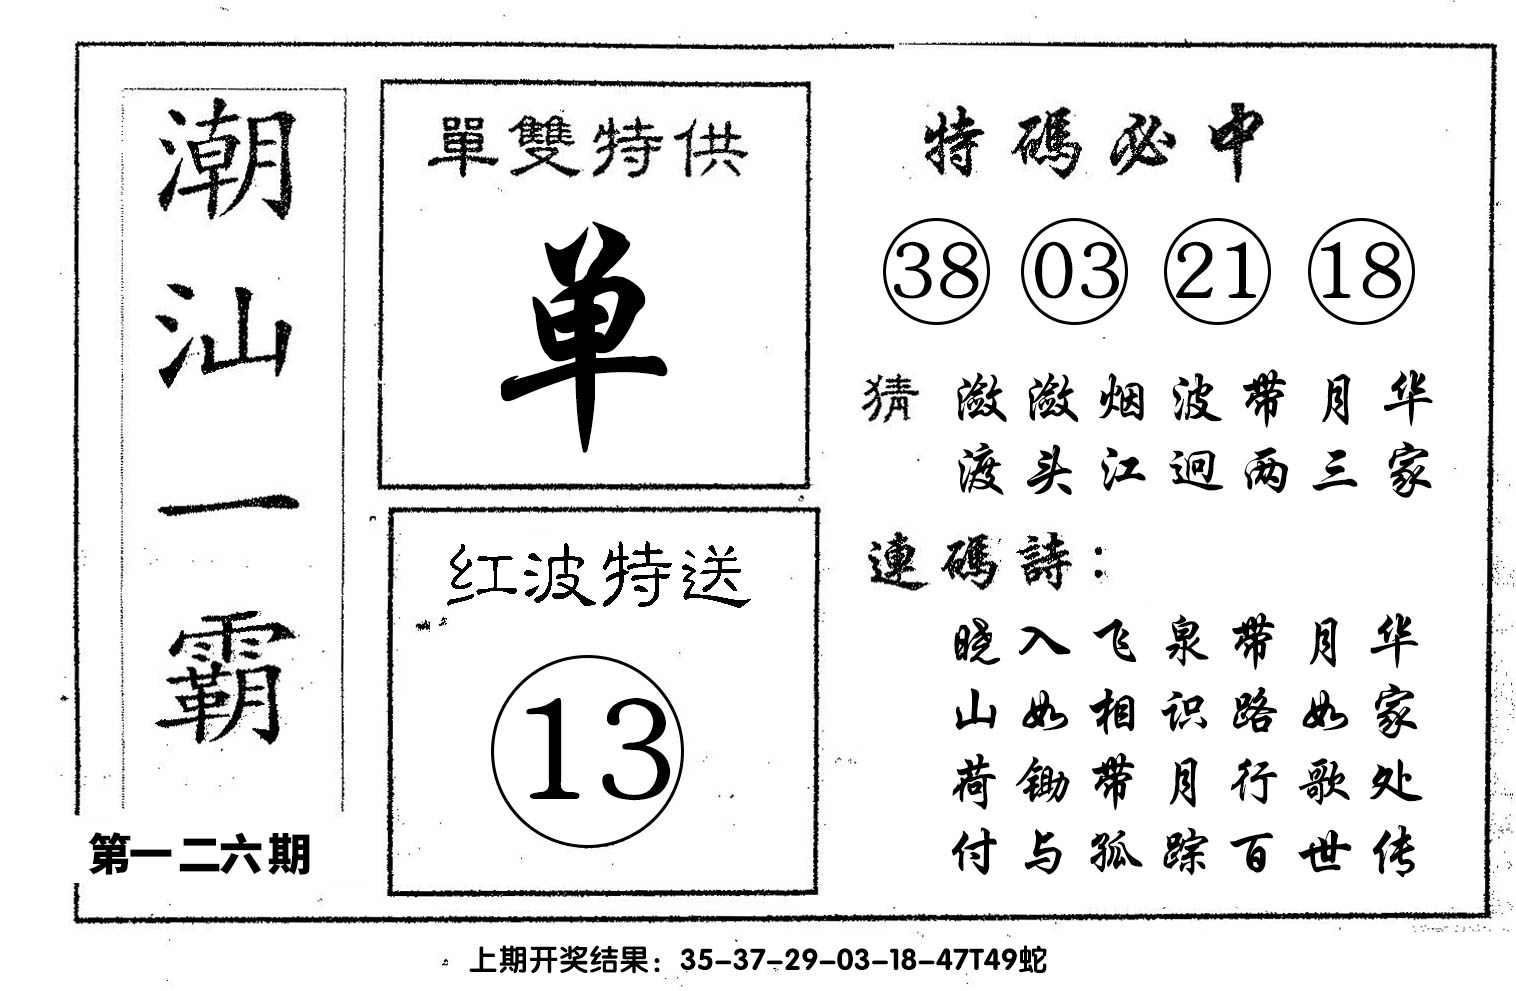 潮汕一霸
第一二六期
單雙特供
单
红波特送
13
特碼必中
38 03 21 18
猜 潋潋烟波带月华
渡头江迥两三家
連碼詩：
晓入飞泉带月华
山如相识路如家
荷锄带月行歌处
付与孤踪百世传
上期开奖结果：35-37-29-03-18-47T49蛇